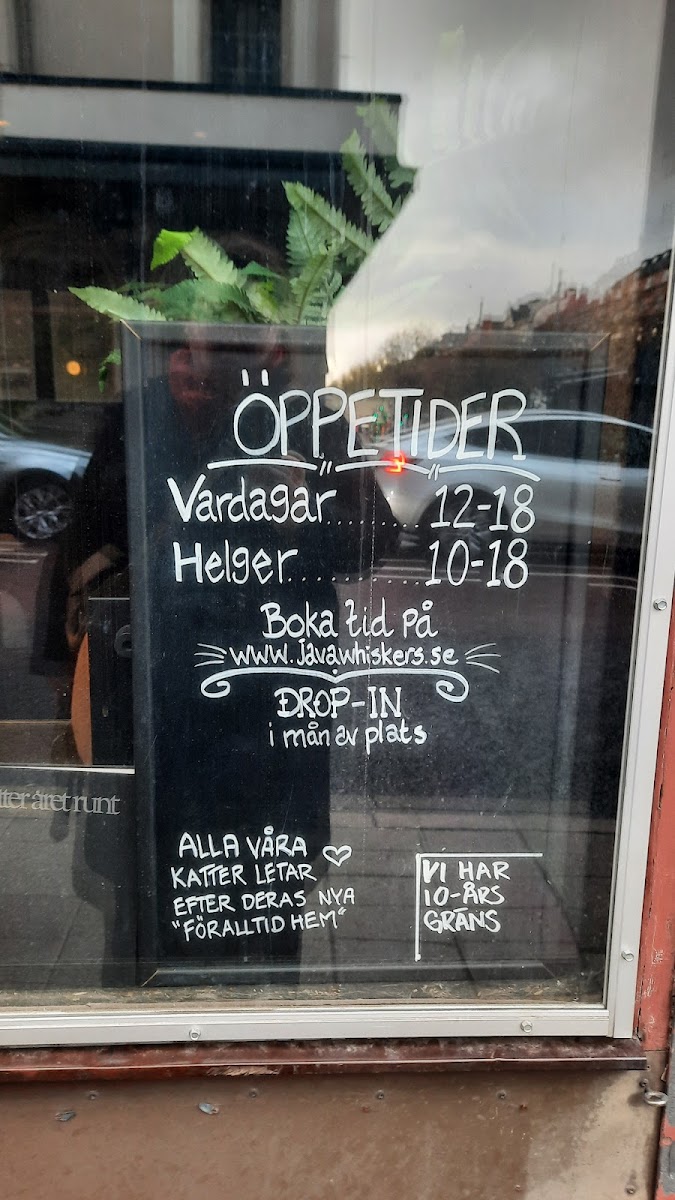 ÖPPETIDER
Vardagar......... 12-18
Helger............ 10-18
Boka tid på
www.javawhiskers.se
DROP-IN
i mån av plats
ALLA VÅRA
KATTER LETAR
EFTER DERAS NYA
"FÖRALLTID HEM"
VI HAR
10-ÅRS
GRÄNS
året runt